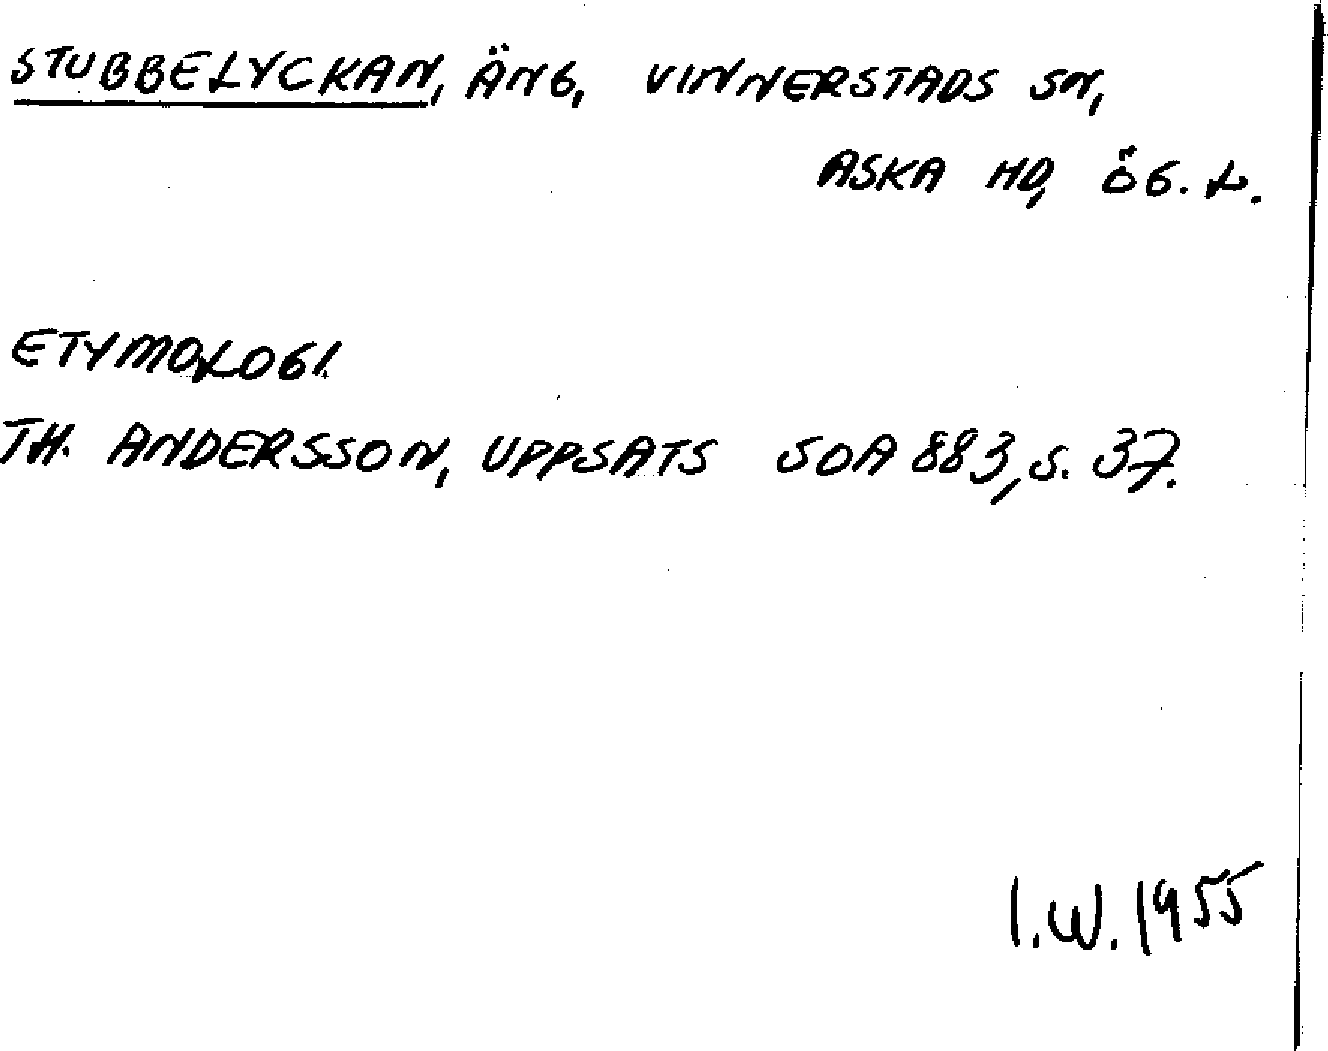 STUBBELYCKAN, ÄNG, VINNERSTADS SN,
ASKA HD, ÖG. L.
ETYMOLOGI.
TH. ANDERSSON, UPPSATS SOA 883, S. 37.
I.W. 1955